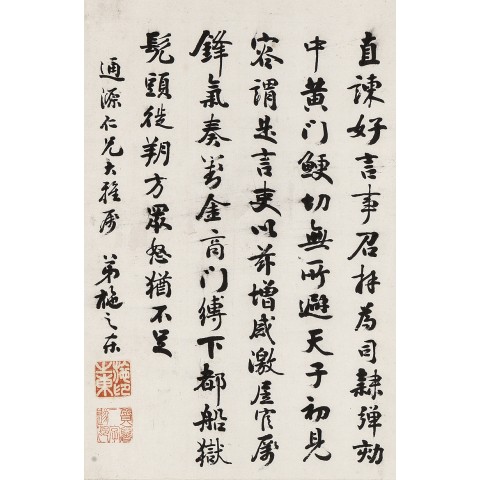 直諫好言事召拜為司隸彈劾
中黃門鯁切無所避天子初見
容謂是言吏以茲增感激居官厲
鋒氣奏對金商門縛下都船獄
髡頭徙朔方眾怒猶不足
通源仁兄大雅屬
弟施之東
施之東印